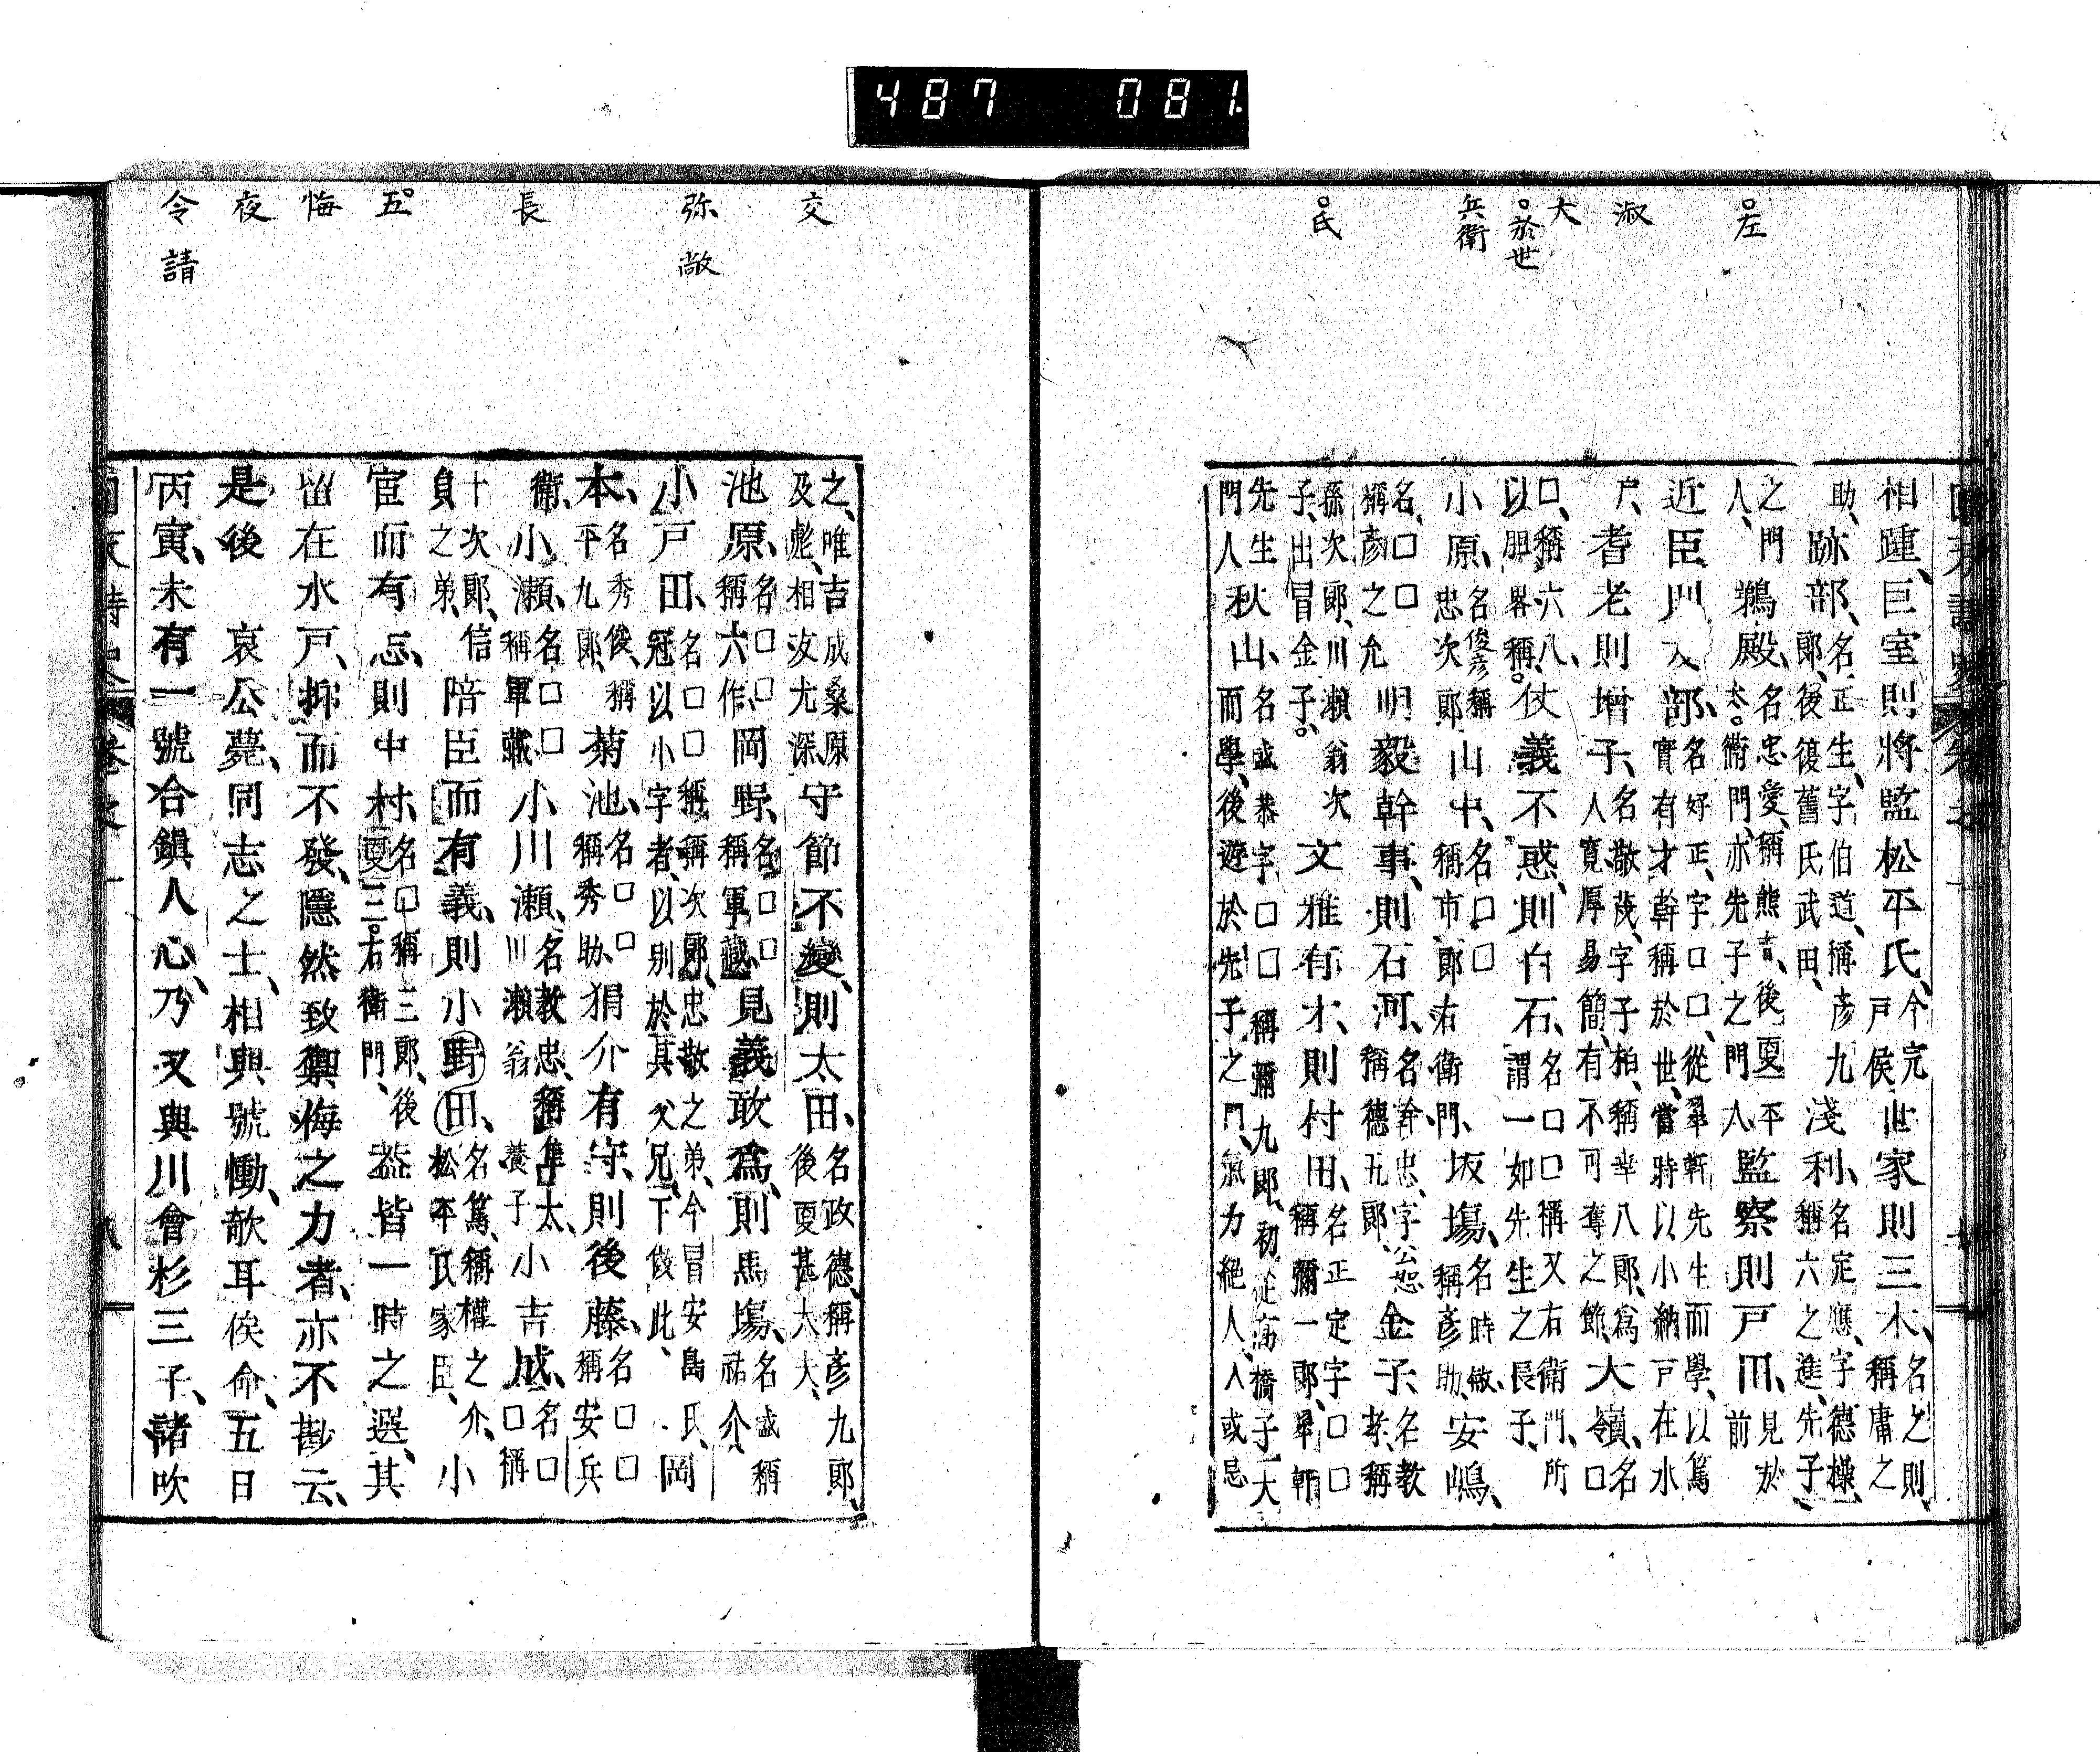 487 081
左
淑
大
於世
兵衛
氏
相踵、巨室則將監松平氏、今完戶侯世家則三木、名之則、稱庸之
助、跡部、名正生、字伯道、稱彦九郎、後復舊氏武田、淺利、名定應、字德操、稱六之進、先子
之門人、鵜殿、名忠愛、稱熊吉、後更平太衛門、亦先子之門人、監察則戸田、見於前
近臣則大部、名好正、字口口、從翠軒先生而學、以篤實有才幹稱於世、當時以小納戸在水
戸、耆老則增子、名敬茂、字子柏、稱幸八郎、爲人寬厚易簡、有不可奪之節、大嶺、名口
口、稱六八、以胆畧稱。仗義不惑、則白石、名口口稱又右衛門、所謂一如先生之長子、
小原、名俊彦稱忠次郎山中、名口口稱市郎右衛門、坂塲、名時敏、稱彦助、安嶋、
名口口稱彦之允明毅幹事、則石河、名幹忠、字公恕稱德五郎、金子、名教孝、稱
孫次郎、川瀬翁次子、出冒金子。文雅有才、則村田、名正定字口口稱彌一郎、翠軒
先生門人秋山、名盛恭字口口稱彌九郎、初從高橋子大而學、後遊於先子之門、無力絕人、人或忌
交
弥敞
長
五
悔
夜
令請
之、唯吉成桑原及彪、相汝尤深、守節不變、則太田、名政德、稱彦九郎、後更甚大夫、
池原、名口口稱六作、岡野、名口口稱軍藏、見義敢爲、則馬塲、名誠稱祐介、
小戸田、名口口稱稱次郎、忠敞之弟、今冒安島氏、冠以小字者、以别於其父兄、下傚此、岡
本、名秀俊、稱平九郎、菊池、名口口稱秀助、狷介有守、則後藤、名口口稱安兵
衛、小瀬、名口口稱軍藏、小川瀬、名教忠、稱隼太、川瀬翁養子小吉成、名口口稱
十次郎、信負之弟、陪臣而有義、則小野田、名篤、稱權之介、松平氏家臣、小
宦而有志、則中村、名口稱三郎、後更三右衛門、蓋皆一時之選、其
留在水戸、抑而不發、隱然致禦悔之力者、亦不尠云、
是後 哀公薨、同志之士、相與號慟、欷耳俟命、五日
丙寅、未有一號合鎭人心、乃又與川會杉三子、諸吹